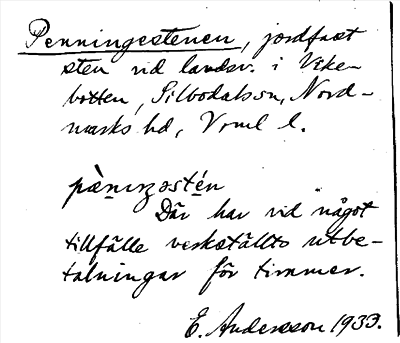 Penningestenen, jordfast
sten vid landsv. i Vike-
botten, Silbodals sn, Nord-
marks hd, Vrml l.
pæ̀nɩŋəstén
Där har vid något
tillfälle verkställts utbe-
talningar för timmer.
E. Andersson 1933.